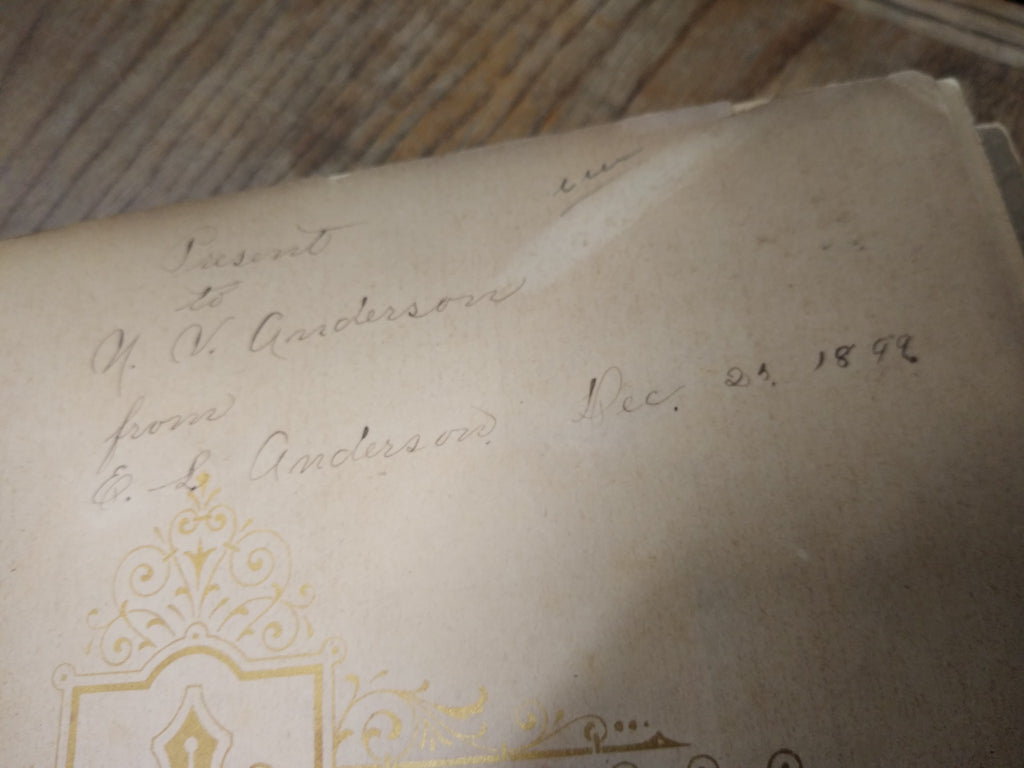 Present
to
N. V. Anderson
from
E. L. Anderson Dec. 25. 1898